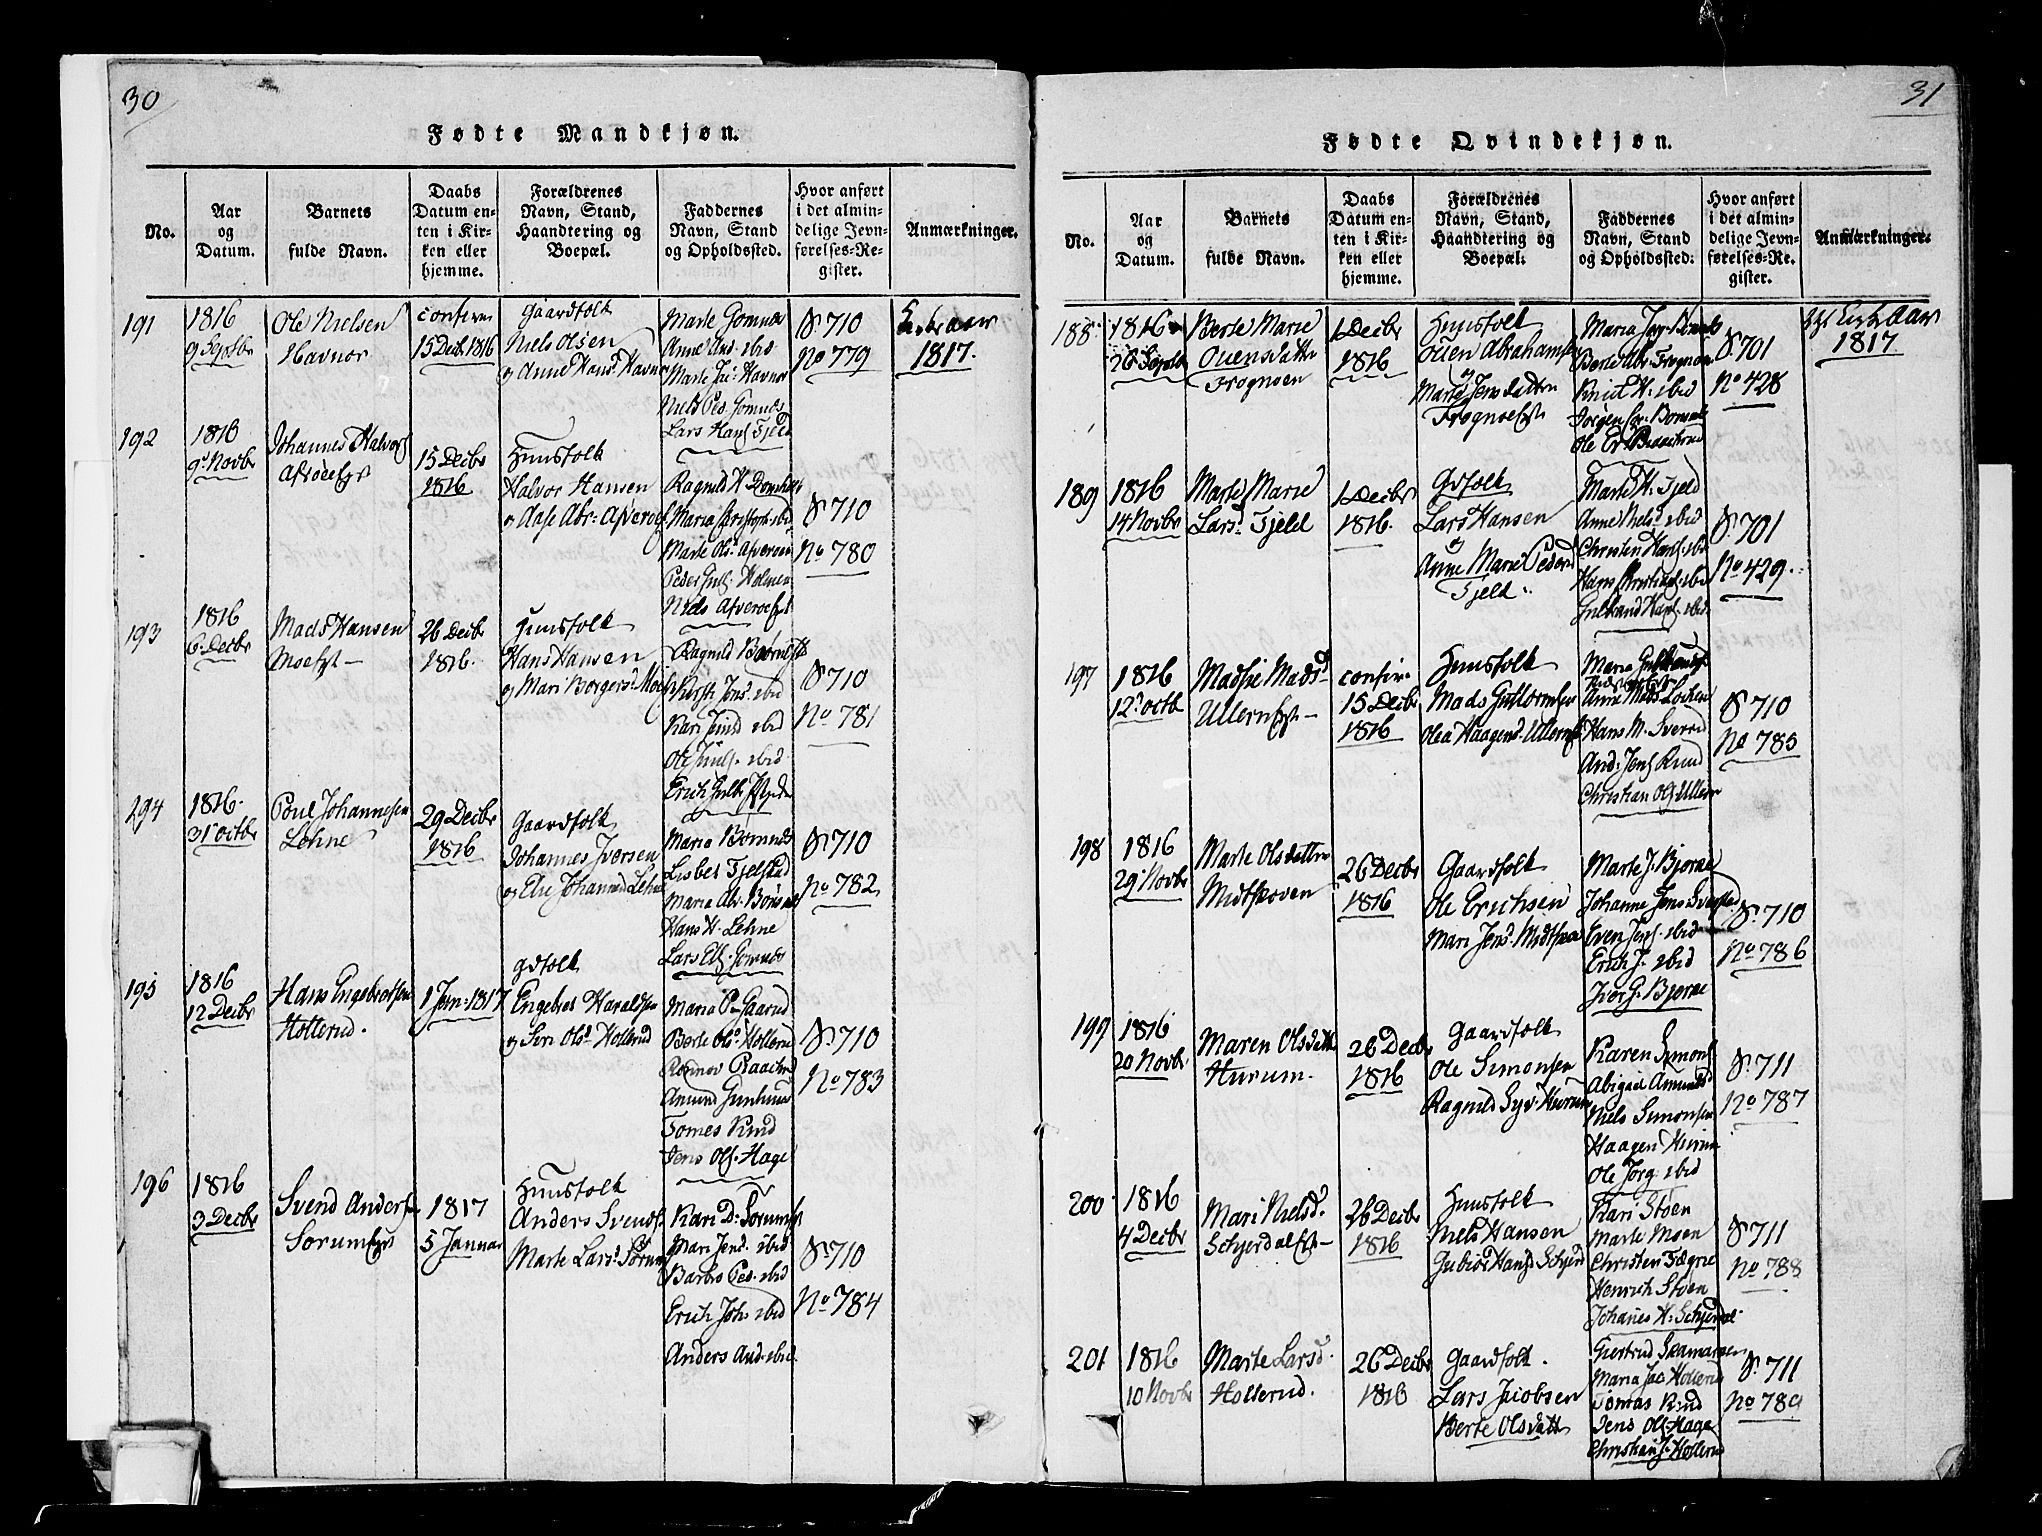 30
Fødte Mandkjøn.
No.
Aar
og
Datum.
Barnets
fulde Navn.
Daabs
Datum en-
ten i Kir-
ken eller
hjemme.
Forældrenes
Navn, Stand,
Haandtering og
Boepæl.
Faddernes
Navn, Stand
og Opholdssted.
Hvor anført
i det almin-
delige Jevn-
førelses-Re-
gister.
Anmærkninger.
191
1816
9 Septbr
Ole Nielsen
Havnor
confirm
15 Decbr 1816
Gaardfolk
Niels Olsen
og Anne Hans. Havnor
Marte Gomnæs
Anne And. ibid
Marte Jac. Havnor
Niels Ped. Gomnæs
Lars Hans. Fjeld
S. 710
No 779
Kirkeaar
1817.
192
1816
9 Novbr
Johannes Halvors.
15 Decbr
1816
Huusfolk
Halvor Hansen
og Aase Abr.
Ragnild H.
Maria Christoph. ibid
Marte Ols.
Peder Gulb. Holmen
Niels
S. 710
No 780
193
1816
6 Decbr
Mads Hansen
Moeeyet
26 Decbr
1816.
Huusfolk
Hans Hansen
og Mari Borgers.
Ragnild
Kirsti Jens. ibid
Kari ibid
Ole ibid
Erich Gulb.
S. 710
No 781
294
1816.
31 Octbr
Poul Johannesen
Lehne
29 Decbr
1816
Gaardfolk
Johannes Iversen
og Else Johannesd Lehne
Maria Bomnæs
Lisbet Fjelstad
Maria Abr. Bønsnæs
Hans H. Lehne
Lars Ell. Gomnæs
S. 710
No 782
195
1816
12 Decbr
Hans Engebretsen
Hollerud.
1 Jan. 1817
Gdfolk
Engebret Haraldsen
og Siri Olsd. Hollerud
Maria P. Gaarud
Berte Ols. Hollerud
Amund
Tomes Rud
Jens Ols. Hage
S. 710
No 783
196
1816
3 Decbr
Svend Anders.
Sørumeyet
1817
5 Januar
Huusfolk
Anders Svends.
Marte Lars. Sørum
Kari D. Sørumeyet
Mari Jens. ibid
Barbro Ped. ibid
Erich Joh. ibid
Anders And. ibid.
S. 710
No 784
31
Fødte Qvindekjøn.
No.
Aar
og
Datum.
Barnets
fulde Navn.
Daabs
Datum en-
ten i Kir-
ken eller
hjemme.
Forældrenes
Navn, Stand,
Haandtering og
Boepæl.
Faddernes
Navn, Stand
og Opholdssted.
Hvor anført
i det almin-
delige Jevn-
førelses-Re-
gister.
Anmærkninger.
188
1816
26 Septbr
Berte Marie
Ouensdatter
Frognøen
1 Decbr
1816
Huusfolk
Ouen Abrahamsen
og
Marte Jensdatter
Frognøeyet
Maria
Berte Abr. Frognøen
Knud H. ibid
Jørgen
Ole Er.
S. 701
No 428
Kirkeaar
1817
189
1816
14 Novbr
Marte Marie
Larsd. Fjeld
1 Decbr
1816.
Gdfolk
Lars Hansen
og
Anne Marie Pedersd
Fjeld.
Marte H. Fjeld
Anne Niels. ibid
Christen Hans. ibid
Hans Christians. ibid
Gulbrand Hans. ibid
S. 701
No 429.
197
1816
12 Octb
Madsie Madsd
Ullerneyet
confir.
15 Decbr
1816
Huusfolk
Mads Guttormsen
Olea Haagens. Ullerneyet
Maria Gulbrands.
Anne Mads. Løken
Hans M. Sverud
And. Jens. Ruud
Christian Ols. Ullern
S. 710
No 785
198
1816
29 Novbr
Marte Olsdatter
Midtskoven
26 Decbr
1816
Gaardfolk
Ole Erichsen
Mari Jens. Midtskov
Marte J. Bjørke
Johanne Jens.
Even Jens. ibid
Erich J. ibid
Iver G. Bjørke
S. 710
No 786
199
1816
20 Novbr
Maren Olsdatter
Hurum.
26 Decbr
1816
Gaardfolk
Ole Simonsen
Ragnild Syv. Hurum
Karen Simons.
Abigael Amunds.
Niels Simonsen
Haagen Hurum
Ole Jørg. ibid
S. 711
No 787
200
1816
4 Decbr
Mari Nielsd.
Schjerdaleyet
26 Decbr
1816
Huusfolk
Niels Hansen
Gubiør Hansd Schjerd
Kari Støen
Marte Moen
Christen Fægrie
Henrich Støen
Johanes H. Schjerdal
S. 711
No 788
201
1816
10 Novbr
Marte Larsd.
Hollerud.
26 Decbr
1816
Gaardfolk.
Lars Jacobsen
Berte Olsdatt
Giertrud
Maria Jac Hollerud
Tomas Rud
Jens Ols. Hage
Christian J. Hollerud
S. 711
No 789